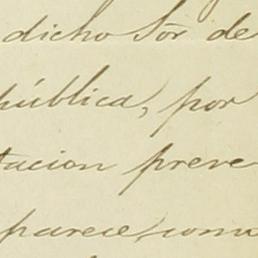 dicho Sor de
pública, por
tacion preve
parece como